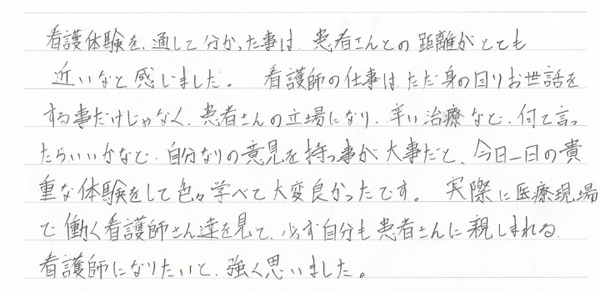 看護体験を、通して分かった事は、患者さんとの距離がとても
近いなと感じました。 看護師の仕事は、ただ身の回りお世話を
する事だけじゃなく、患者さんの立場になり、辛い治療など、何て言っ
たらいいかなど、自分なりの意見を持つ事が大事だと、今日一日の貴
重な体験をして色々学べて大変良かったです。 実際に医療現場
で働く看護師さん達を見て、必ず自分も患者さんに親しまれる
看護師になりたいと、強く思いました。